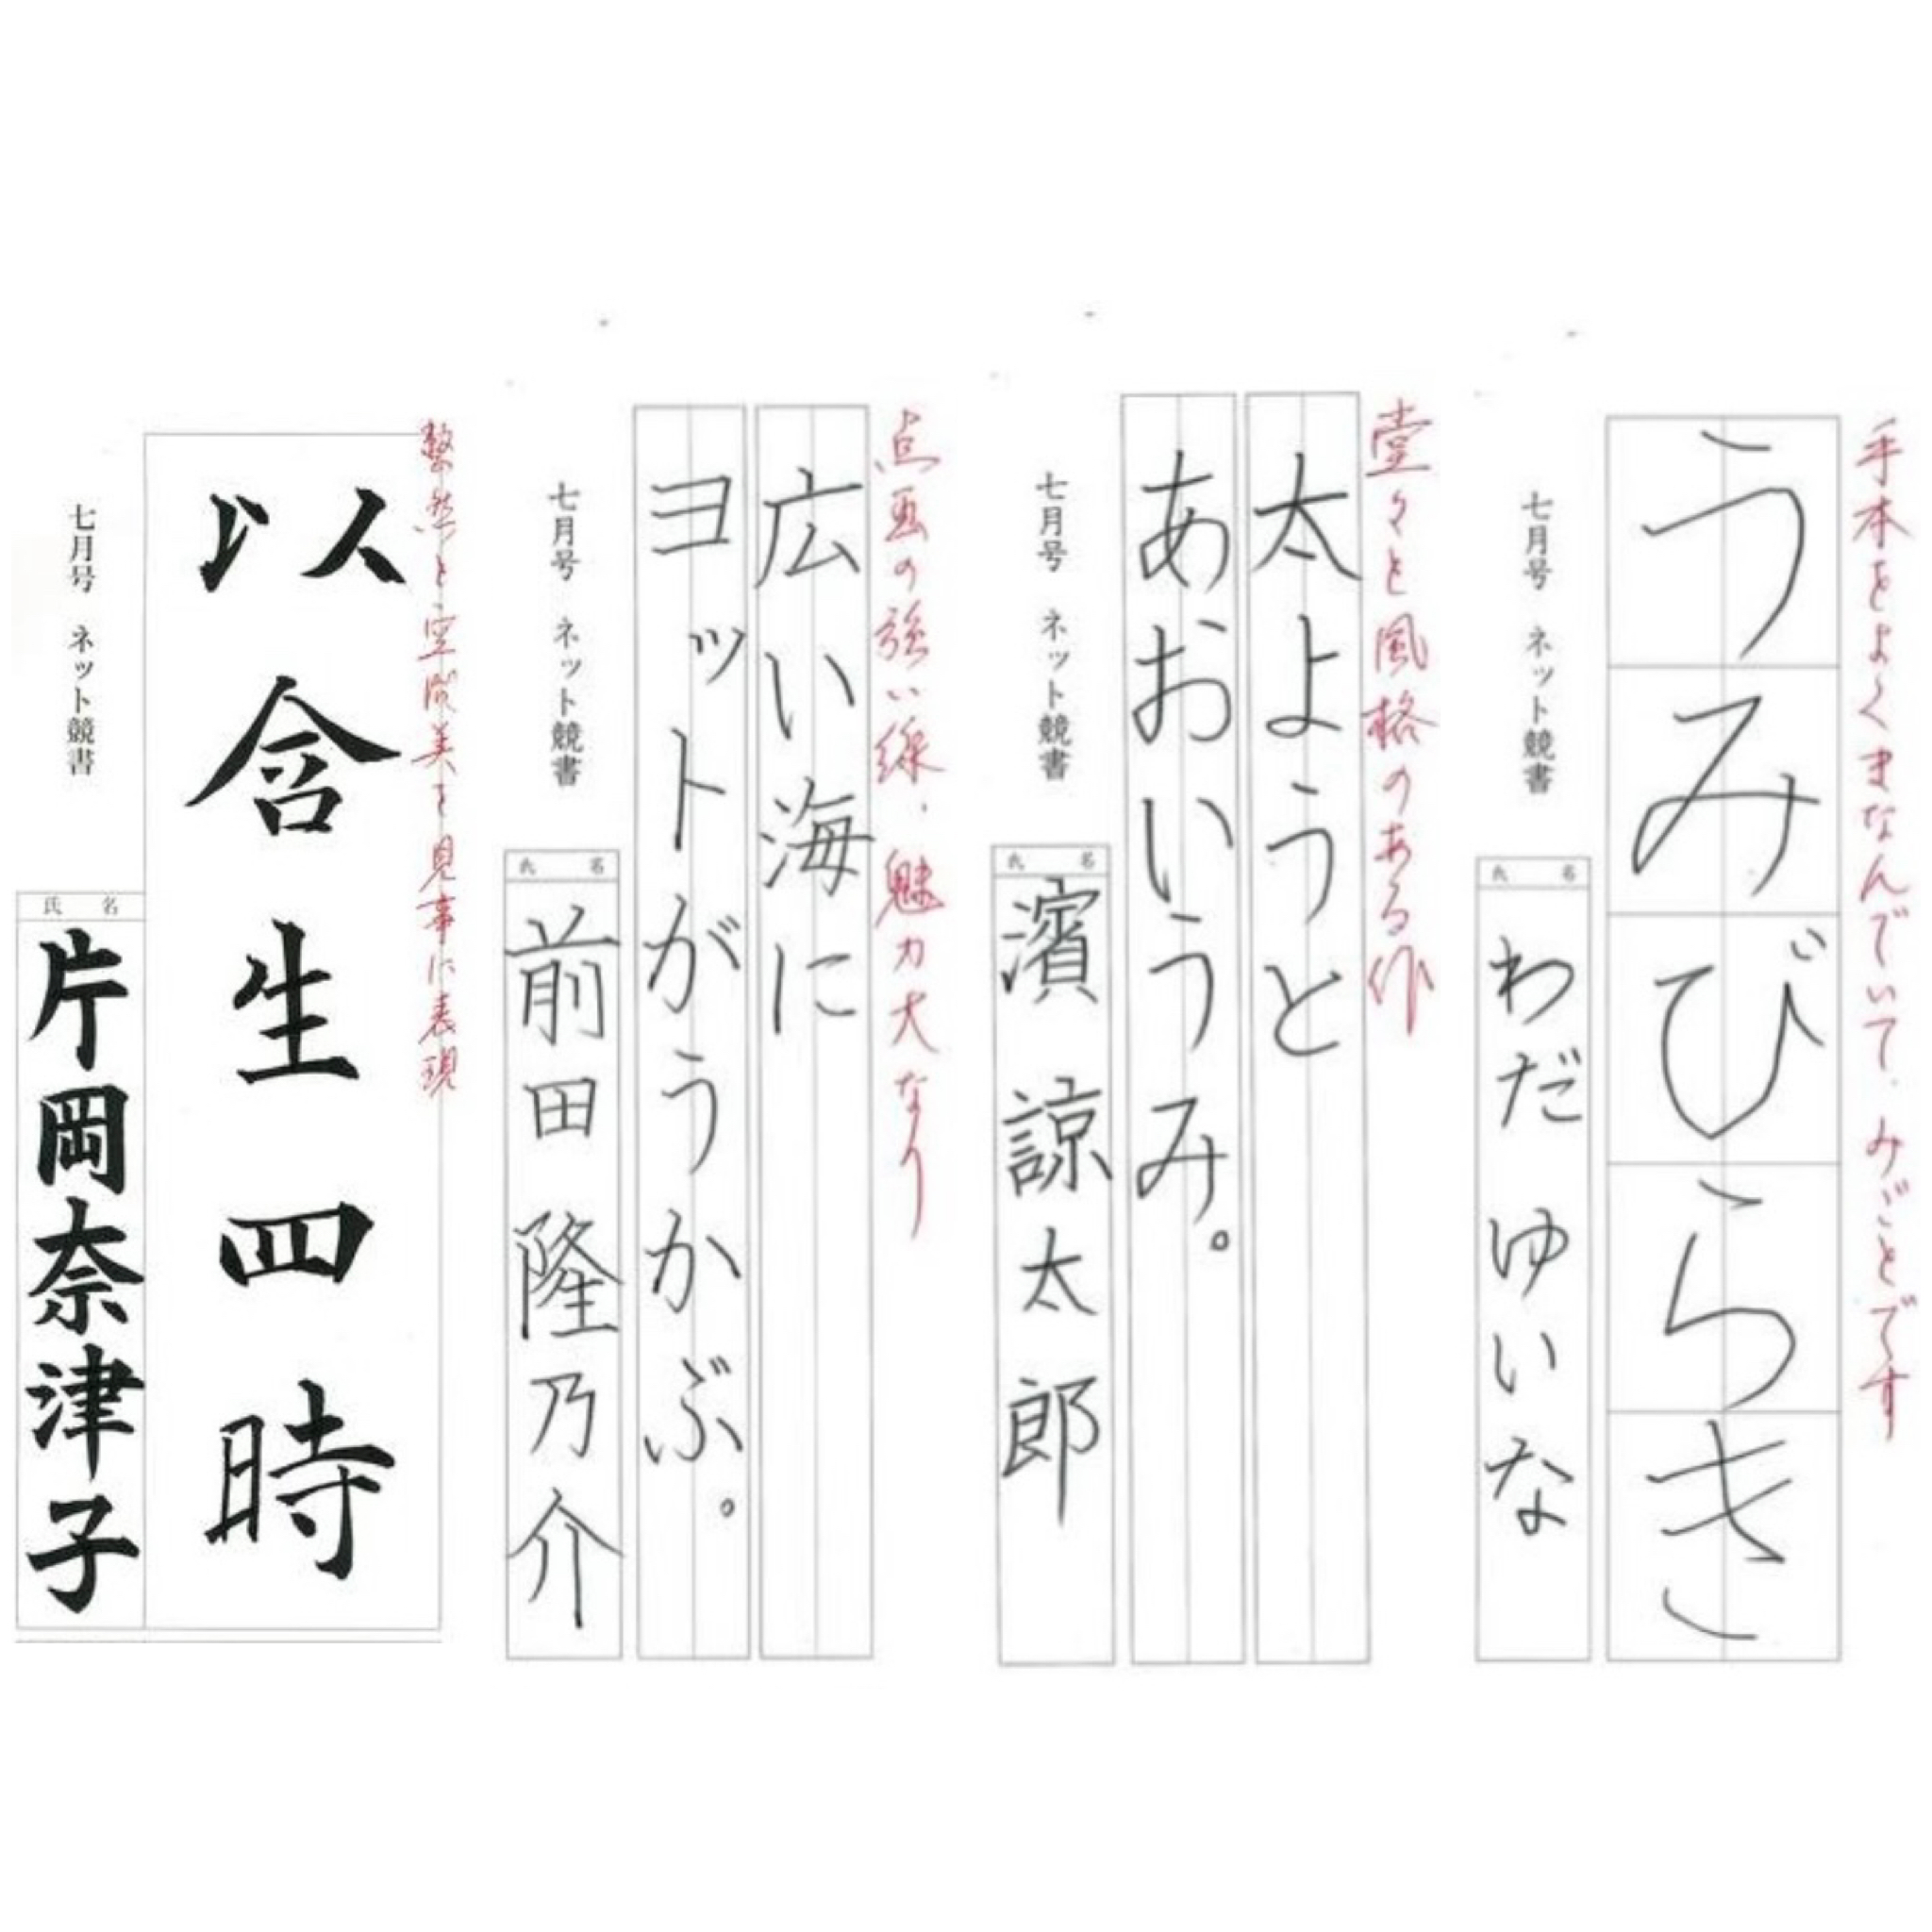 手本をよくまなんでいて、みごとです
うみびらき
七月号 ネット競書
氏 名
わだ ゆいな
堂々と風格のある作
太ようと
あおいうみ。
七月号 ネット競書
氏 名
濱 諒太郎
点画の強い線、魅力大なり
広い海に
ヨットがうかぶ。
七月号 ネット競書
氏 名
前田 隆乃介
整然と空間美を見事に表現
以含生四時
七月号 ネット競書
氏 名
片岡奈津子